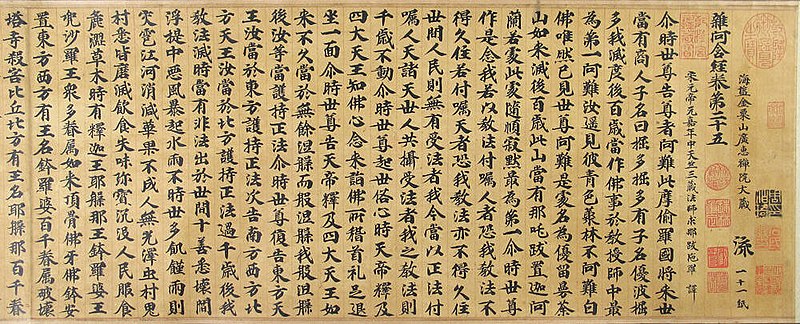 雜阿含經卷第二十五
海鹽金粟山廣惠禪院大藏 添 一十一紙
宋元帝元嘉年中天竺三藏法師求那跋陁羅 譯
尒時世尊告尊者阿難此摩偷羅國將来世
當有商人子名曰掘多掘多有子名優波掘
多我滅度後百歲當作佛事於教授師中最
為第一阿難汝遥見彼青色叢林不阿難白
佛唯然已見世尊阿難是處名為優留曼荼
山如来滅後百歲此山當有那吒跋置迦阿
蘭若處此處隨順寂默最為第一尒時世尊
作是念我若以教法付囑人者恐我教法不
得久住若付囑天者恐我教法亦不得久住
世間人民則無有受法者我今當以正法付
囑人天諸天世人共攝受法者我之教法則
千歲不動尒時世尊起世俗心時天帝釋及
四大天王知佛心念来詣佛所稽首礼足退
坐一面尒時世尊告天帝釋及四大天王如
来不久當於無餘涅槃而般涅槃我般涅槃
後汝等當護持正法尒時世尊復告東方天
王汝當於東方護持正法次告南方西方北
方天王汝當於北方護持正法過千歲後我
教法滅時當有非法出於世間十善悉壞閻
浮提中惡風暴起水雨不時世多飢饉雨則
灾雹江河消滅華果不成人無光澤虫村鬼
村悉皆磨滅飲食失味珎寳沉沒人民服食
麁澀草木時有釋迦王耶槃那王鉢羅婆王
兜沙羅王衆多眷属如来頂骨佛牙佛鉢安
置東方西方有王名鉢羅婆百千眷属破壞
塔寺殺害比丘北方有王名耶槃那百千眷